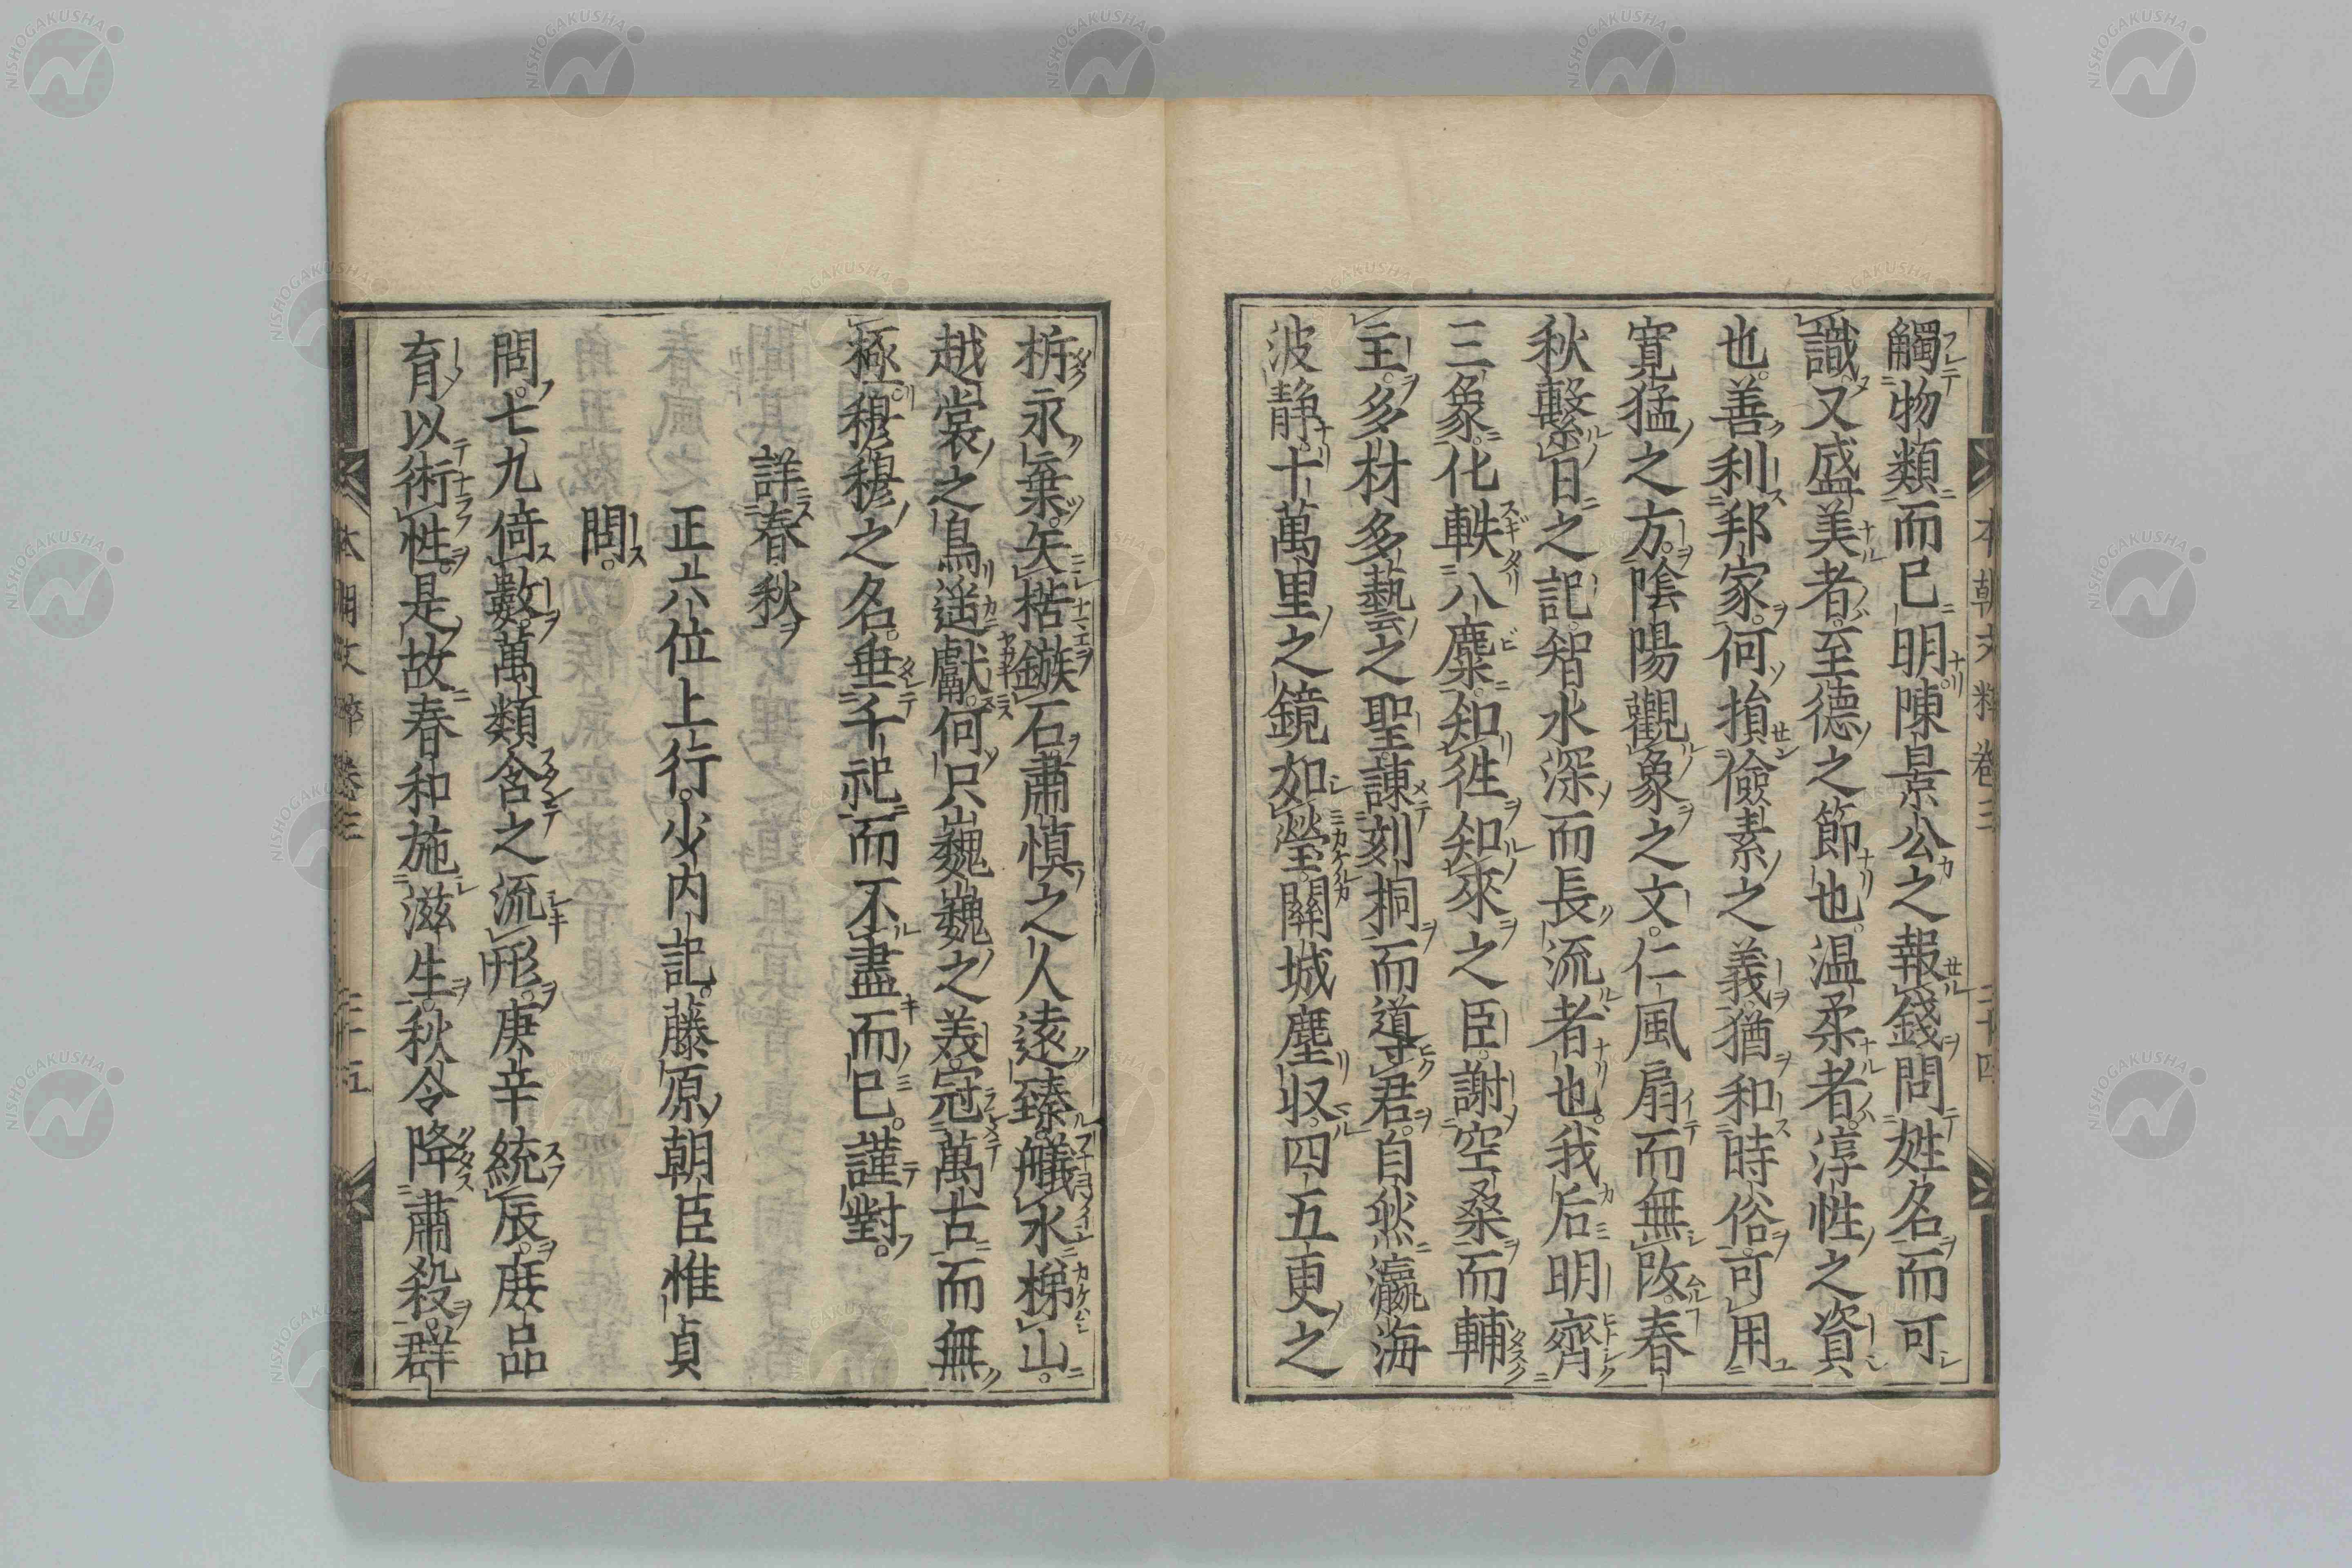 觸物類而已明陳景公之報錢問姓名而可
識又盛美者至德之節也温柔者淳性之資
也善利邦家何損儉素之義猶和時俗可用
寬猛之方陰陽觀象之文仁風扇而無改春
秋繫日之記智水深而長流者也我后明齊
三象化軼八麋知徃知來之臣謝空桑而輔
主多材多藝之聖諌刻桐而導君自然瀛海
波静十萬里之鏡如瑩關城塵収四五更之
柝永棄矢楛鏃石肅慎之人遠臻艤水梯山
越裳之鳥遥獻何只巍巍之美冠萬古而無
極穆穆之名垂千祀而不盡而已謹對
詳春秋
正六位上行少内記藤原朝臣惟貞
問
問七九倚數萬類含之流形庚辛統辰庶品
育以術性是故春和施滋生秋令降肅殺群
本朝文粹卷三
三十四
本朝文粹卷三
三十五
NISHOGAKUSHA